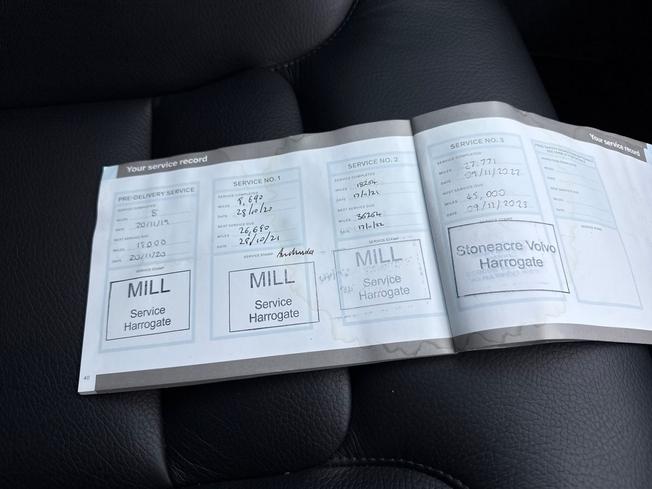 Your service record
PRE-DELIVERY SERVICE
SERVICE COMPLETED
MILES 8
DATE 20/11/19
NEXT SERVICE DUE
MILES 18000
DATE 20/11/20
SERVICE STAMP
MILL
Service
Harrogate
SERVICE NO. 1
SERVICE COMPLETED
MILES 8,690
DATE 28/10/20
NEXT SERVICE DUE
MILES 26,690
DATE 28/10/21
SERVICE STAMP
MILL
Service
Harrogate
SERVICE NO. 2
SERVICE COMPLETED
MILES 18264
DATE
NEXT SERVICE DUE
MILES 36264
DATE
SERVICE STAMP
MILL
Service
Harrogate
40
SERVICE NO. 3
SERVICE COMPLETED
MILES 27,771
DATE 09/11/2022
NEXT SERVICE DUE
MILES 45,000
DATE 09/11/2023
SERVICE STAMP
Stoneacre Volvo
Harrogate
Your service record